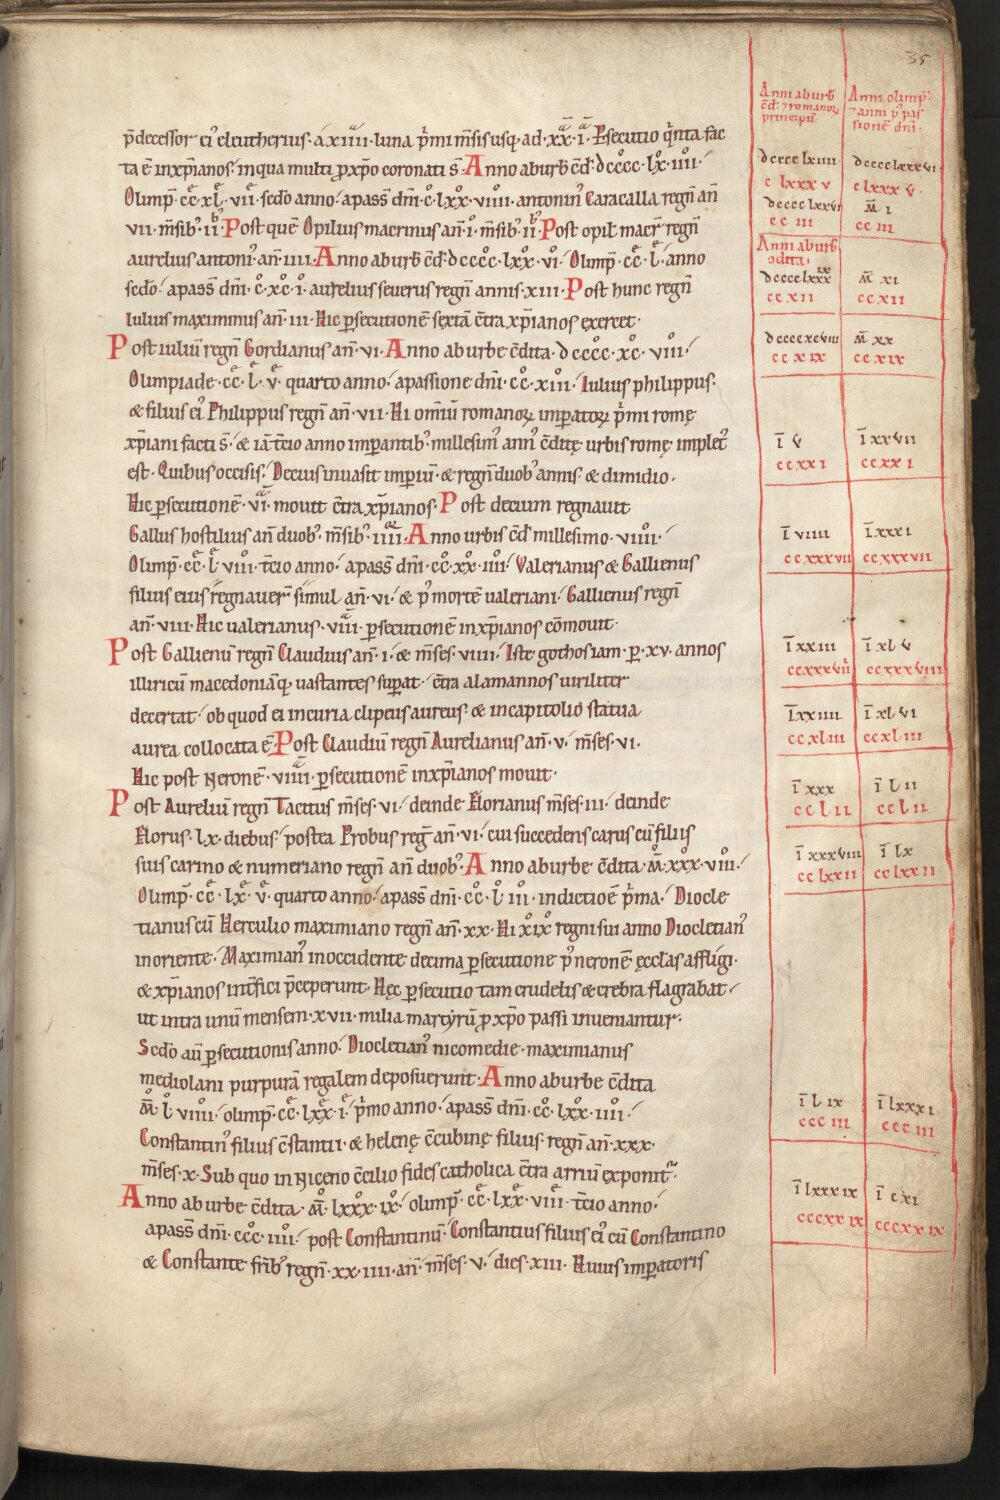 35
p̄decessor ei᾽ eleutherius· a xiiii· luna p̄mi m̄sis usq; ad· xx· i· P̱secutio q̄nta fac
ta ē in xp̄ianos· in qua multi p̱ xp̄o coronati s̄· Anno ab urb̄ c̄d· dcccc· lx· iiii·
Olimp̄· cc xl· vii· sc̄do anno· a pass̄ dn̄i· c· lxx· viiii· antonin᾽ Caracalla regn̄ an̄
vii· m̄sib᾽· ii· Post quē Opilius macrinus an̄· i· m̄sib᾽· ii· Post opil̄ macr̄ regn̄
aurelius antoni᾽ an̄· iiii· Anno ab urb̄ c̄d· dcccc· lxx· vi· Olimp̄· cc· l· anno
sc̄do· a pass̄ dn̄i· c· xc· i· aurelius seuerus regn̄ annis· xiii· Post hunc regn̄
Iulius maximinus an̄· iii· Hic p̱secutionē sextā c̄tra xp̄ianos exercet·
Post iuliū regn̄ Gordianus an̄· vi· Anno ab urbe c̄dita· dcccc· xc· viii·
Olimpiade· cc· l· v· quarto anno· a passione dn̄i· cc· xiii· Iulius philippus·
& filius ei᾽ Philippus regn̄ an̄· vii· Hi om̄iū romanoꝝ imp̱atoꝝ p̄mi romę
xp̄iani facti s̄· & iā t̄cio anno imp̱antib᾽ millesim᾽ ann᾽ c̄ditę urbis romę implet᾽
est· Quibus occisis· Decius inuasit imp̱iū· & regn̄ duob᾽ annis· & dimidio·
Hic p̱secutionē· vi· mouit c̄tra xp̄ianos· Post decium regnauit
Gallus hostilius an̄ duob᾽· m̄sib᾽· iiii· Anno urbis c̄d millesimo· viiii·
Olimp̄· cc· l· viii· t̄cio anno· a pass̄ dn̄i· cc· xx· iiii· Valerianus & Gallienus
filius eius regnauer̄ simul an̄· vi· & p᾽ mortē ualeriani· Gallienus regn̄
an̄· viii· Hic ualerianus· viii· p̱secutionē in xp̄ianos cōmouit·
Post Gallienū regn̄ Claudius an̄· i· & m̄ses· viiii· Iste gothos iam· p̱· xv· annos
illiricū macedoniāq; uastantes sup̱at· c̄tra alamannos uiriliter
decertat· ob quod ei in curia clipeus aureus· & in capitolio statua
aurea collocata ē· Post Claudiū regn̄ Aurelianus an̄· v· m̄ses· vi·
Hic post Neronē· viiii· p̱secutionē in xp̄ianos mouit·
Post Aureliū regn̄ Tacitus m̄ses· vi· deinde Florianus m̄ses· iii· deinde
Florus· lx· diebus· postea Probus reḡ an̄· vi· cui succedens carus cū filiis
suis carino & numeriano regn̄ an̄ duob᾽· Anno ab urbe c̄dita· m̄· xxx· viii·
Olimp̄· cc· lx· v· quarto anno· a pass̄ dn̄i· cc· l· iii· indictioē p̄ma· Diocle
tianus cū Herculio maximiano regn̄ an̄· xx· Hi xix regni sui anno Diocletian᾽
in oriente· Maximian᾽ in occidente decima p̱secutione p᾽ neronē ęcclas affligi·
& xp̄ianos int̄fici p̄ceperunt· Hęc p̱secutio tam crudelis & crebra flagrabat·
ut intra unū mensem· xvii· milia martyrū p̱ xp̄o passi inueniantur·
Sc̄do aū p̱secutionis anno· Diocletian᾽ nicomedie· maximianus
mediolani purpurā regalem deposuerunt· Anno ab urbe c̄dita
m̄· l· viiii· olimp̄· cc· lxx· i· p̄mo anno· a pass̄ dn̄i· cc· lxx· iiii·
Constantin᾽ filius c̄stantii· & helenę c̄cubinę filius· regn̄ an̄· xxx·
m̄ses· x· Sub quo in Niceno c̄cilio fides catholica c̄tra arriū exponit᾽·
Anno ab urbe c̄dita· m̄· lxxx· ix· olimp̄· cc· lxx· viii· t̄cio anno·
a pass̄ dn̄i· ccc· iiii· post Constantinū· Constantius filius ei᾽ cū Constantino
& Constante fr̄ib᾽ regn̄· xx· iiii· an̄· m̄ses· v· dies· xiii· Huius imp̱atoris
Anni ab urb̄ Anni olimp̄·
c̄d· ⁊ romanoꝝ ⁊ anni p᾽ pas
principū sionē dn̄i·
dcccc lxiiii dcccc lxxxvi
c lxxx v c lxxx v·
dcccc lxxvi m̄ i
cc iii cc iii
Anni ab urb̄
c̄dita·
dcccc lxxxix m̄ xi
cc xii cc xii
dcccc xcviii m̄ xx
cc xix cc xix
ī v ī xxvii
cc xxi cc xxi
ī viiii ī xxxi
cc xxxvii cc xxxvii
ī xxiii ī xl v
cc xxxvii cc xxxviii
ī xxiiii ī xl vi
cc xliii cc xliii
ī xxx ī l ii
cc l ii cc l ii
ī xxxviii ī lx
cc lxxii cc lxxii
ī l ix ī lxxxi
ccc iii ccc iii
ī lxxxix ī c xi
ccc xx ix ccc xx ix